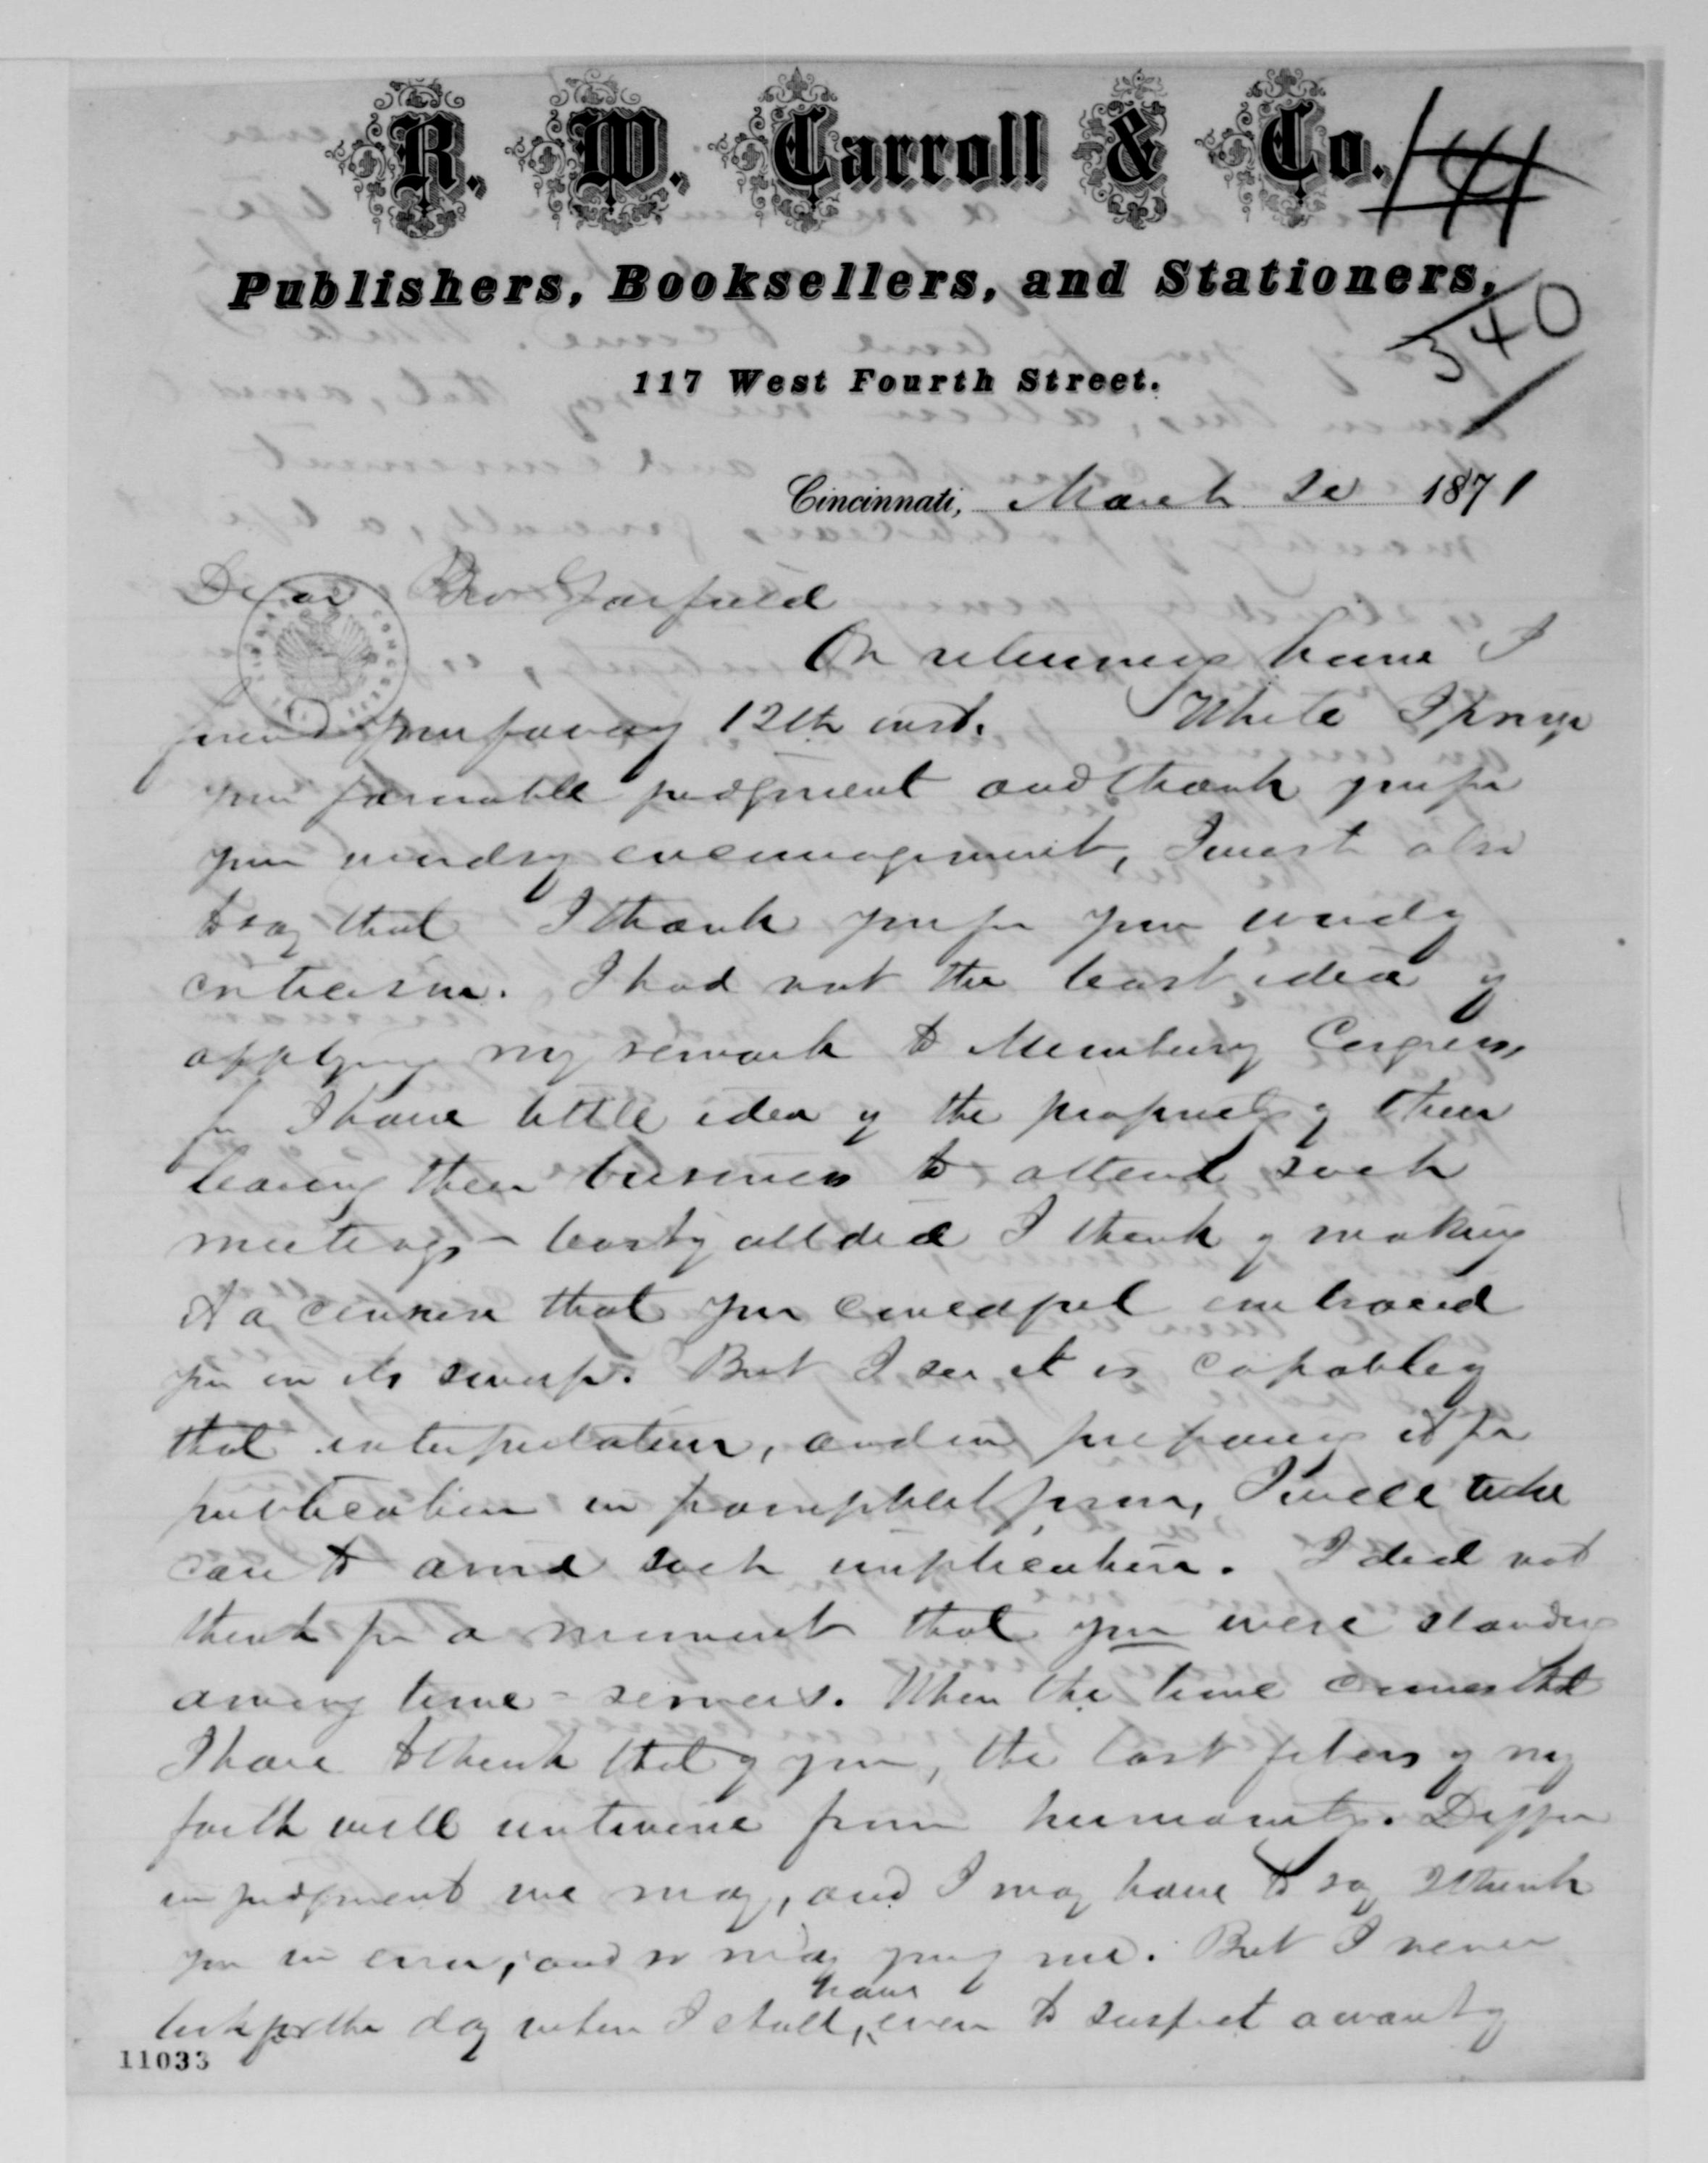 R. W. Carroll & Co.
Publishers, Booksellers, and Stationers,
340
117 West Fourth Street.
Cincinnati, March 20 1871
Dear Bro Garfield
On returning home I
found your favor of 12th inst. While I prize
your favorable judgment and thank you for
your words of encouragement, I must also
to say that I thank you for your words of
criticism. I had not the least idea of
applying my remark to Members of Congress,
for I have little idea of the propriety of their
leaving their business to attend such
meetings – least of all did I think of making
it a censure that you conceived embraced
you in its sweep. But I see it is capable of
that interpretation, and in preparing it for
publication in pamphlet form, I will take
care to avoid such implication. I did not
think for a moment that you were standing
among time-servers. When the time comes that
I have to think that of you, the last fibers of my
faith will untwine from humanity. Differ
in judgment we may, and I may have to say I think
you in error, and so may you of me. But I never
look for the day when I shall, have even to suspect a want of
11033